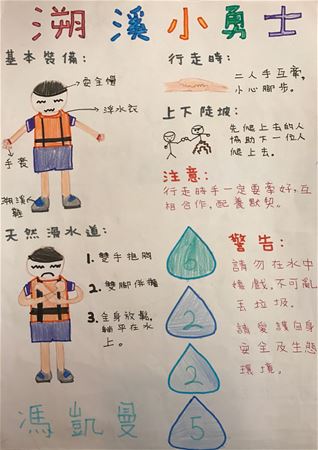 溯溪小勇士
基本裝備：
安全帽
浮水衣
手套
溯溪
鞋
行走時：
二人手互牽，
小心腳步。
上下陡坡：
先爬上去的人
協助下一位人
爬上去。
注意：
行走時手一定要牽好，互
相合作，配養默契。
天然滑水道：
1. 雙手抱胸
2. 雙腳併攏
3. 全身放鬆，
躺平在水
上。
警告：
請勿在水中
嬉戲，不可亂
丟垃圾。
請愛護自身
安全及生態
環境。
6
2
2
5
馮凱曼